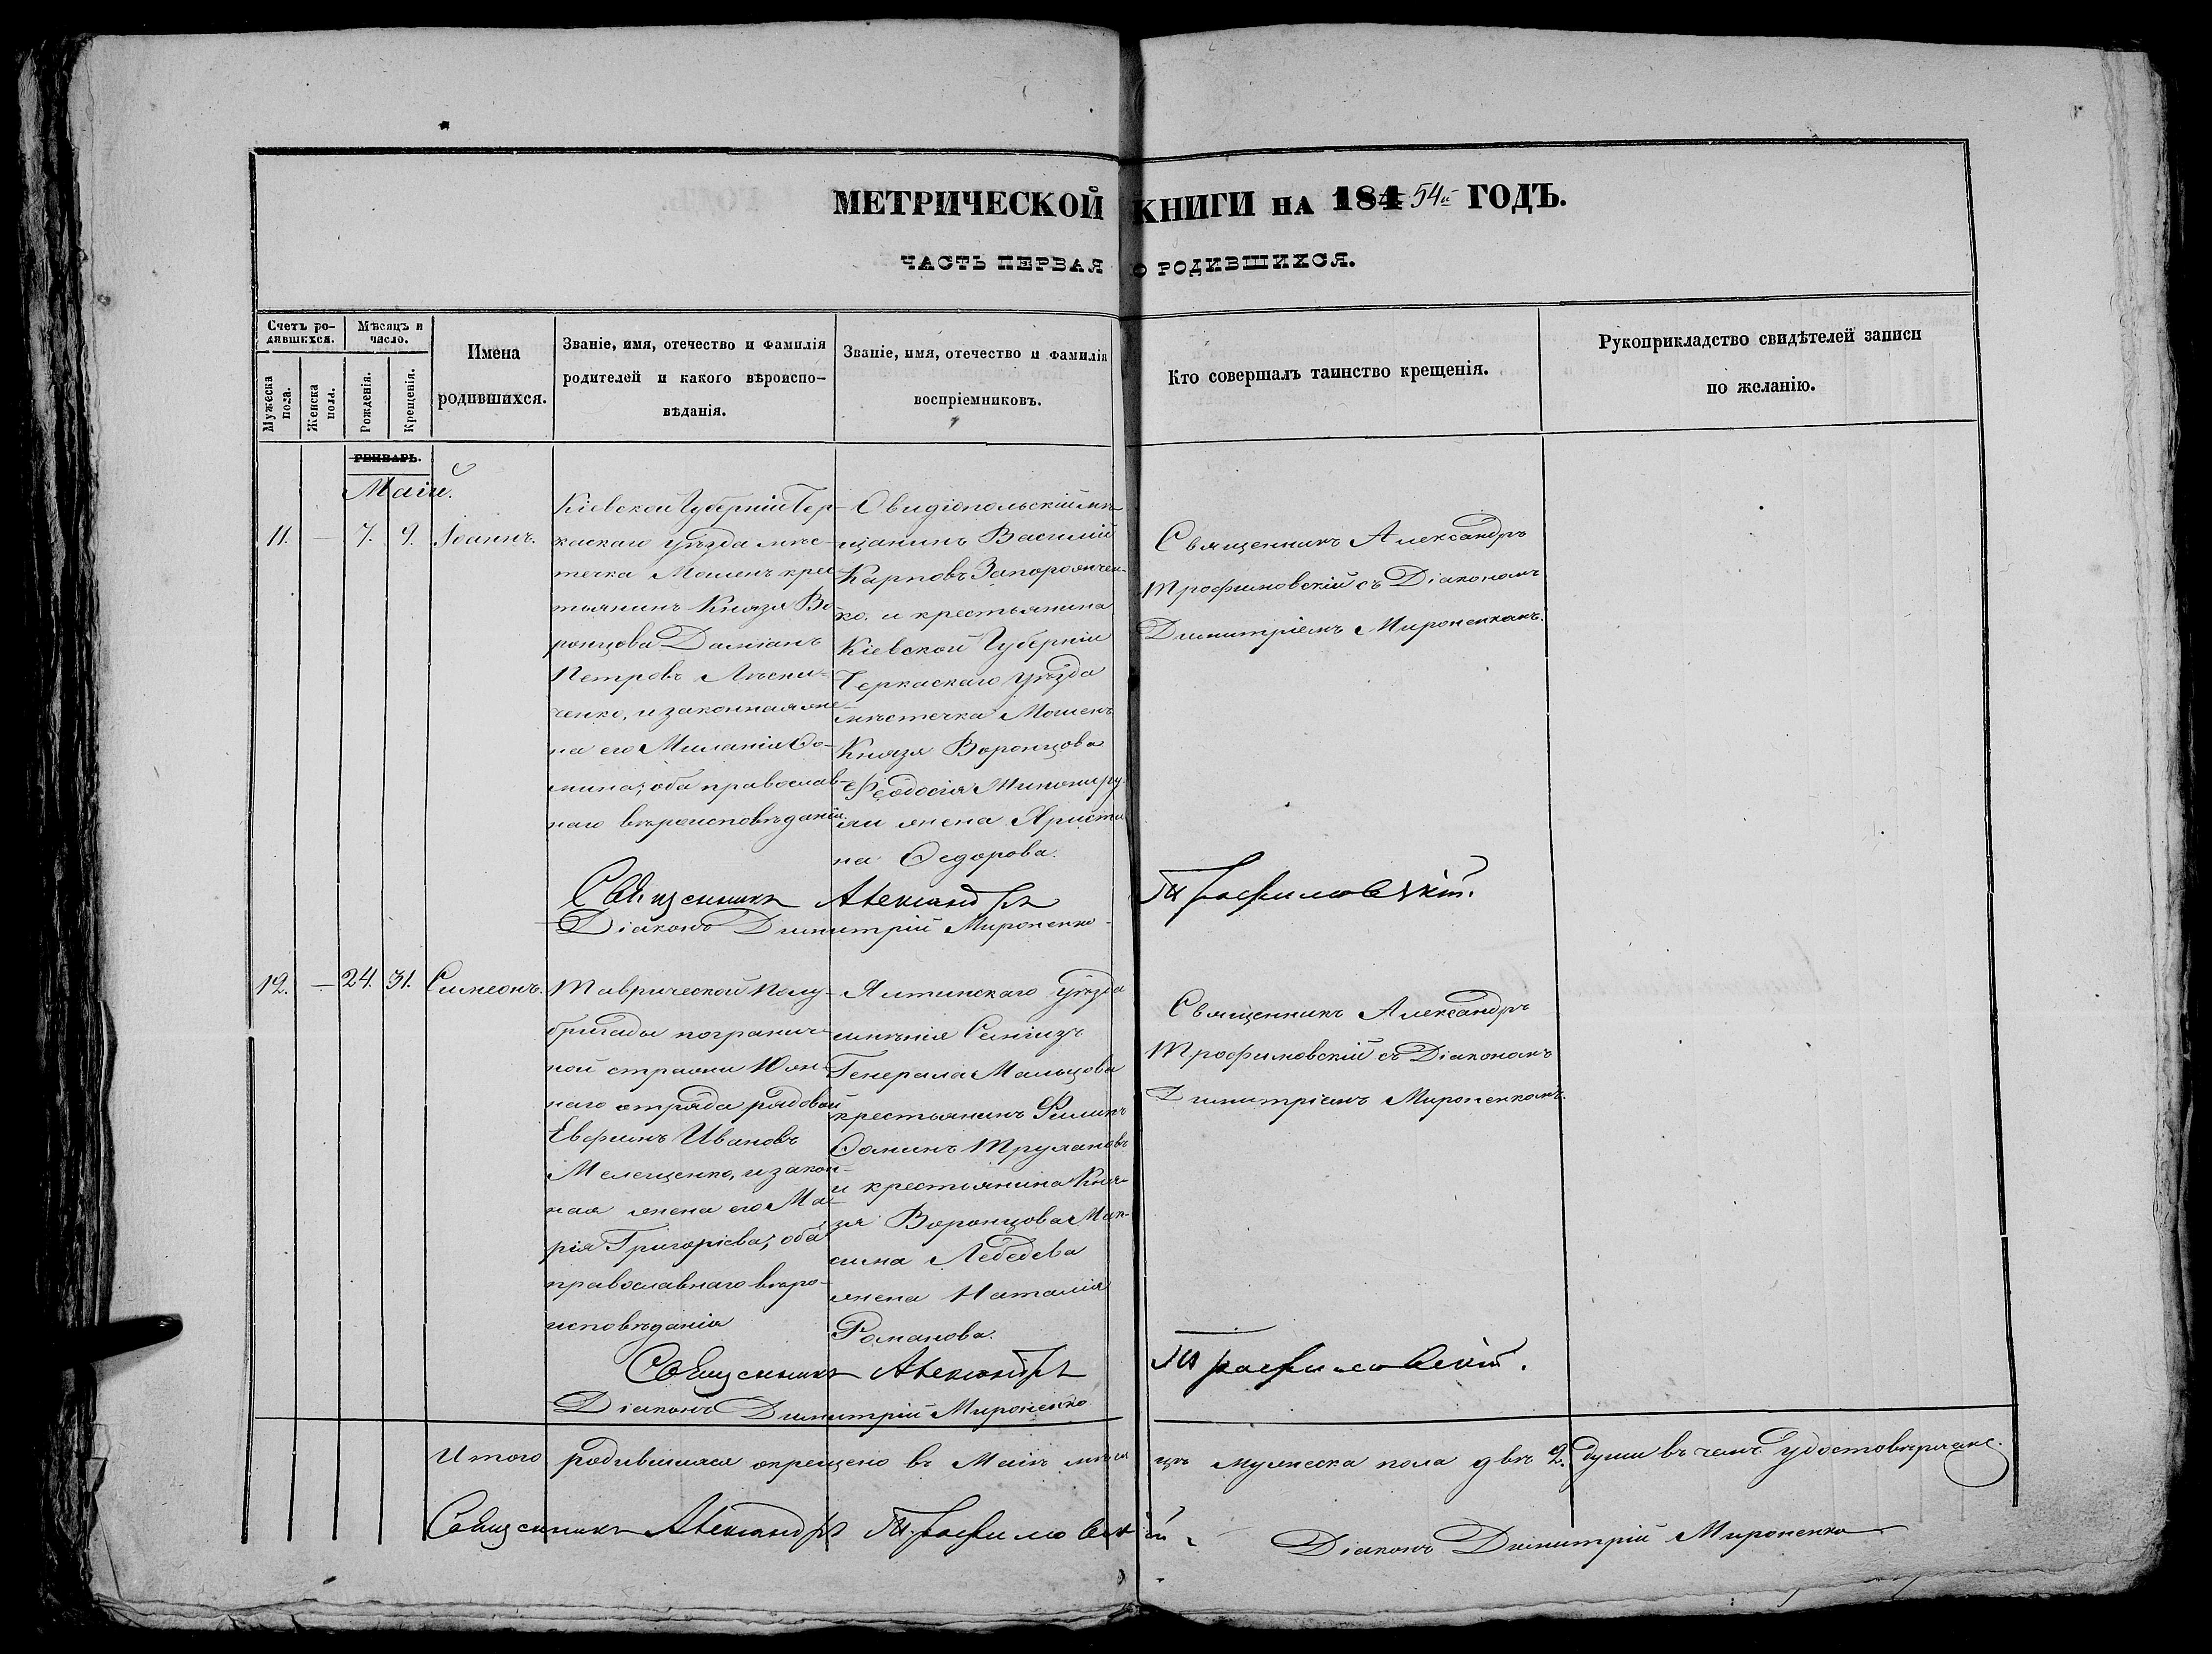 МЕТРИЧЕСКОЙ КНИГИ НА 184 54й ГОДЪ.
ЧАСТЬ ПЕРВАЯ О РОДИВШИХСЯ.
Счетъ ро-
дившихся.
Мужеска пола.
Женска пола.
Мѣсяцъ и
число.
Рожденія.
Крещенія.
Имена
родившихся.
Званіе, имя, отечество и фамилія
родителей и какого вѣроиспо-
вѣданія.
Званіе, имя, отечество и фамилія
воспріемниковъ.
Кто совершалъ таинство крещенія.
Рукоприкладство свидѣтелей записи
по желанію.
ГЕНВАРЬ.
Маій.
11. — 7. 9. Іоаннъ.
Кіевской Губерніи Чер-
каскаго уѣзда мѣс-
течка Мошенъ крес-
тьянинъ Князя Во-
ронцова Даміанъ
Петровъ
ченко, и законная же-
на его Миланія Ѳо-
мина; оба православ-
наго вѣроисповѣданія.
Овидіопольскій мѣ-
щанинъ Василій
Карповъ Запорожчен-
ко, и крестьянина
Кіевской Губерніи
Черкаскаго уѣзда
мѣстечка Мошенъ
Князя Воронцова
Ѳеодосія
жена Христи
на Ѳедорова.
Священникъ Александръ
Трофимовскій съ Діакономъ
Димитріемъ Мироненкомъ.
Священникъ Александръ Трофимовскій.
Діаконъ Димитрій Мироненко
12. — 24. 31. Симеонъ.
Таврической Полу-
бригады погранич-
ной стражи Юж-
наго отряда рядовой
Евфимъ Ивановъ
Мелещенко, и закон-
ная жена его Ма-
рія Григорієва; оба
православнаго вѣро-
исповѣданія
Ялтинскаго уѣзда
имѣнія Симеизъ
Генерала Мальцова
крестьянинъ Филипъ
Ѳоминъ
и крестьянина Кня-
зя Воронцова Мак-
сима Лебедева
жена Наталія
Романова.
Священникъ Александръ
Трофимовскій съ Діакономъ
Димитріемъ Мироненкомъ.
Священникъ Александръ Трофимовскій.
Діаконъ Димитрій Мироненко
Итого родившихся окрещено въ Маіѣ мѣся цѣ мужеска пола двѣ 2. души въ чемъ удостовѣряемъ.
Священникъ Александръ Трофимовскій
Діаконъ Димитрій Мироненко